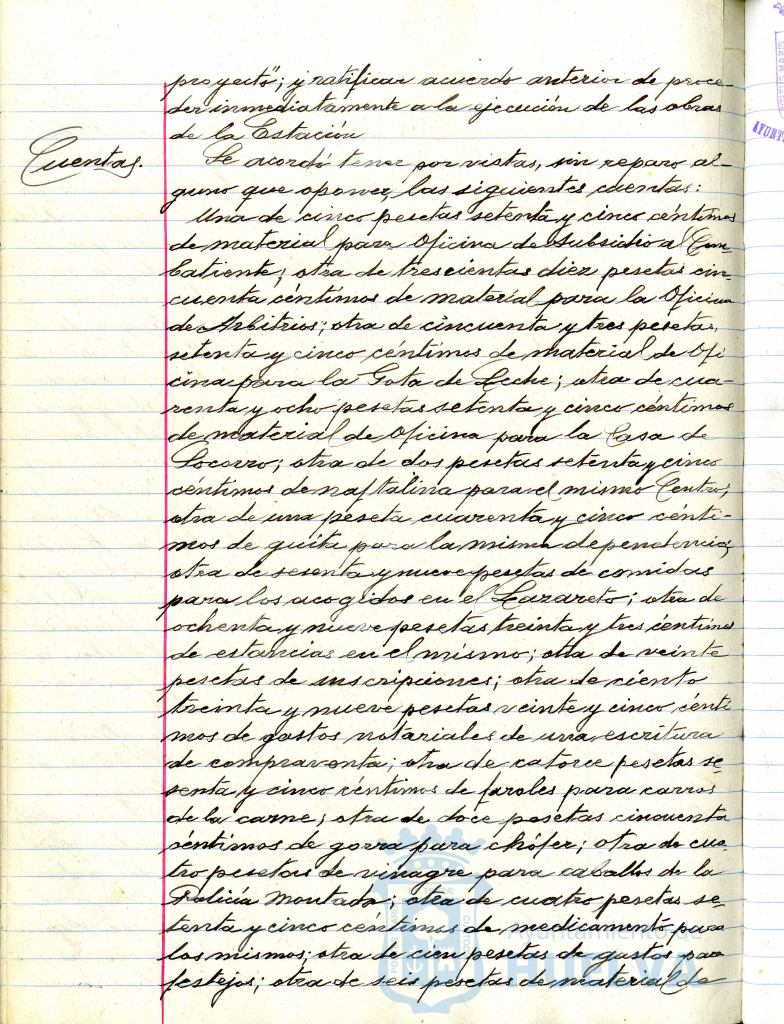 proyecto"; y ratificar acuerdo anterior de proce-
der inmediatamente a la ejecución de las obras
de la Estación
Cuentas.
Se acordó tener por vistas, sin reparo al-
guno que oponer, las siguientes cuentas:
Una de cinco pesetas setenta y cinco céntimos
de material para Oficina de Subsidio al Com-
batiente; otra de trescientas diez pesetas cin-
cuenta céntimos de material para la Oficina
de Arbitrios; otra de cincuenta y tres pesetas,
setenta y cinco céntimos de material de Ofi
cina para la Gota de Leche; otra de cua-
renta y ocho pesetas setenta y cinco céntimos
de material de Oficina para la Casa de
Socorro; otra de dos pesetas setenta y cinco
céntimos de naftalina para el mismo Centro;
otra de una peseta cuarenta y cinco cénti-
mos de guita para la misma dependencia;
otra de sesenta y nueve pesetas de comidas
para los acogidos en el Lazareto; otra de
ochenta y nueve pesetas treinta y tres céntimos
de estancias en el mismo; otra de veinte
pesetas de inscripciones; otra de ciento
treinta y nueve pesetas veinte y cinco cénti
mos de gastos notariales de una escritura
de compraventa; otra de catorce pesetas se-
senta y cinco céntimos de faroles para carros
de la carne; otra de doce pesetas cincuenta
céntimos de gorra para chófer; otra de cua-
tro pesetas de vinagre para caballos de la
Policía Montada; otra de cuatro pesetas se-
tenta y cinco céntimos de medicamento para
los mismos; otra de cien pesetas de gastos para
festejos; otra de seis pesetas de material de
Ayuntamiento de
HUELVA
AYUNT